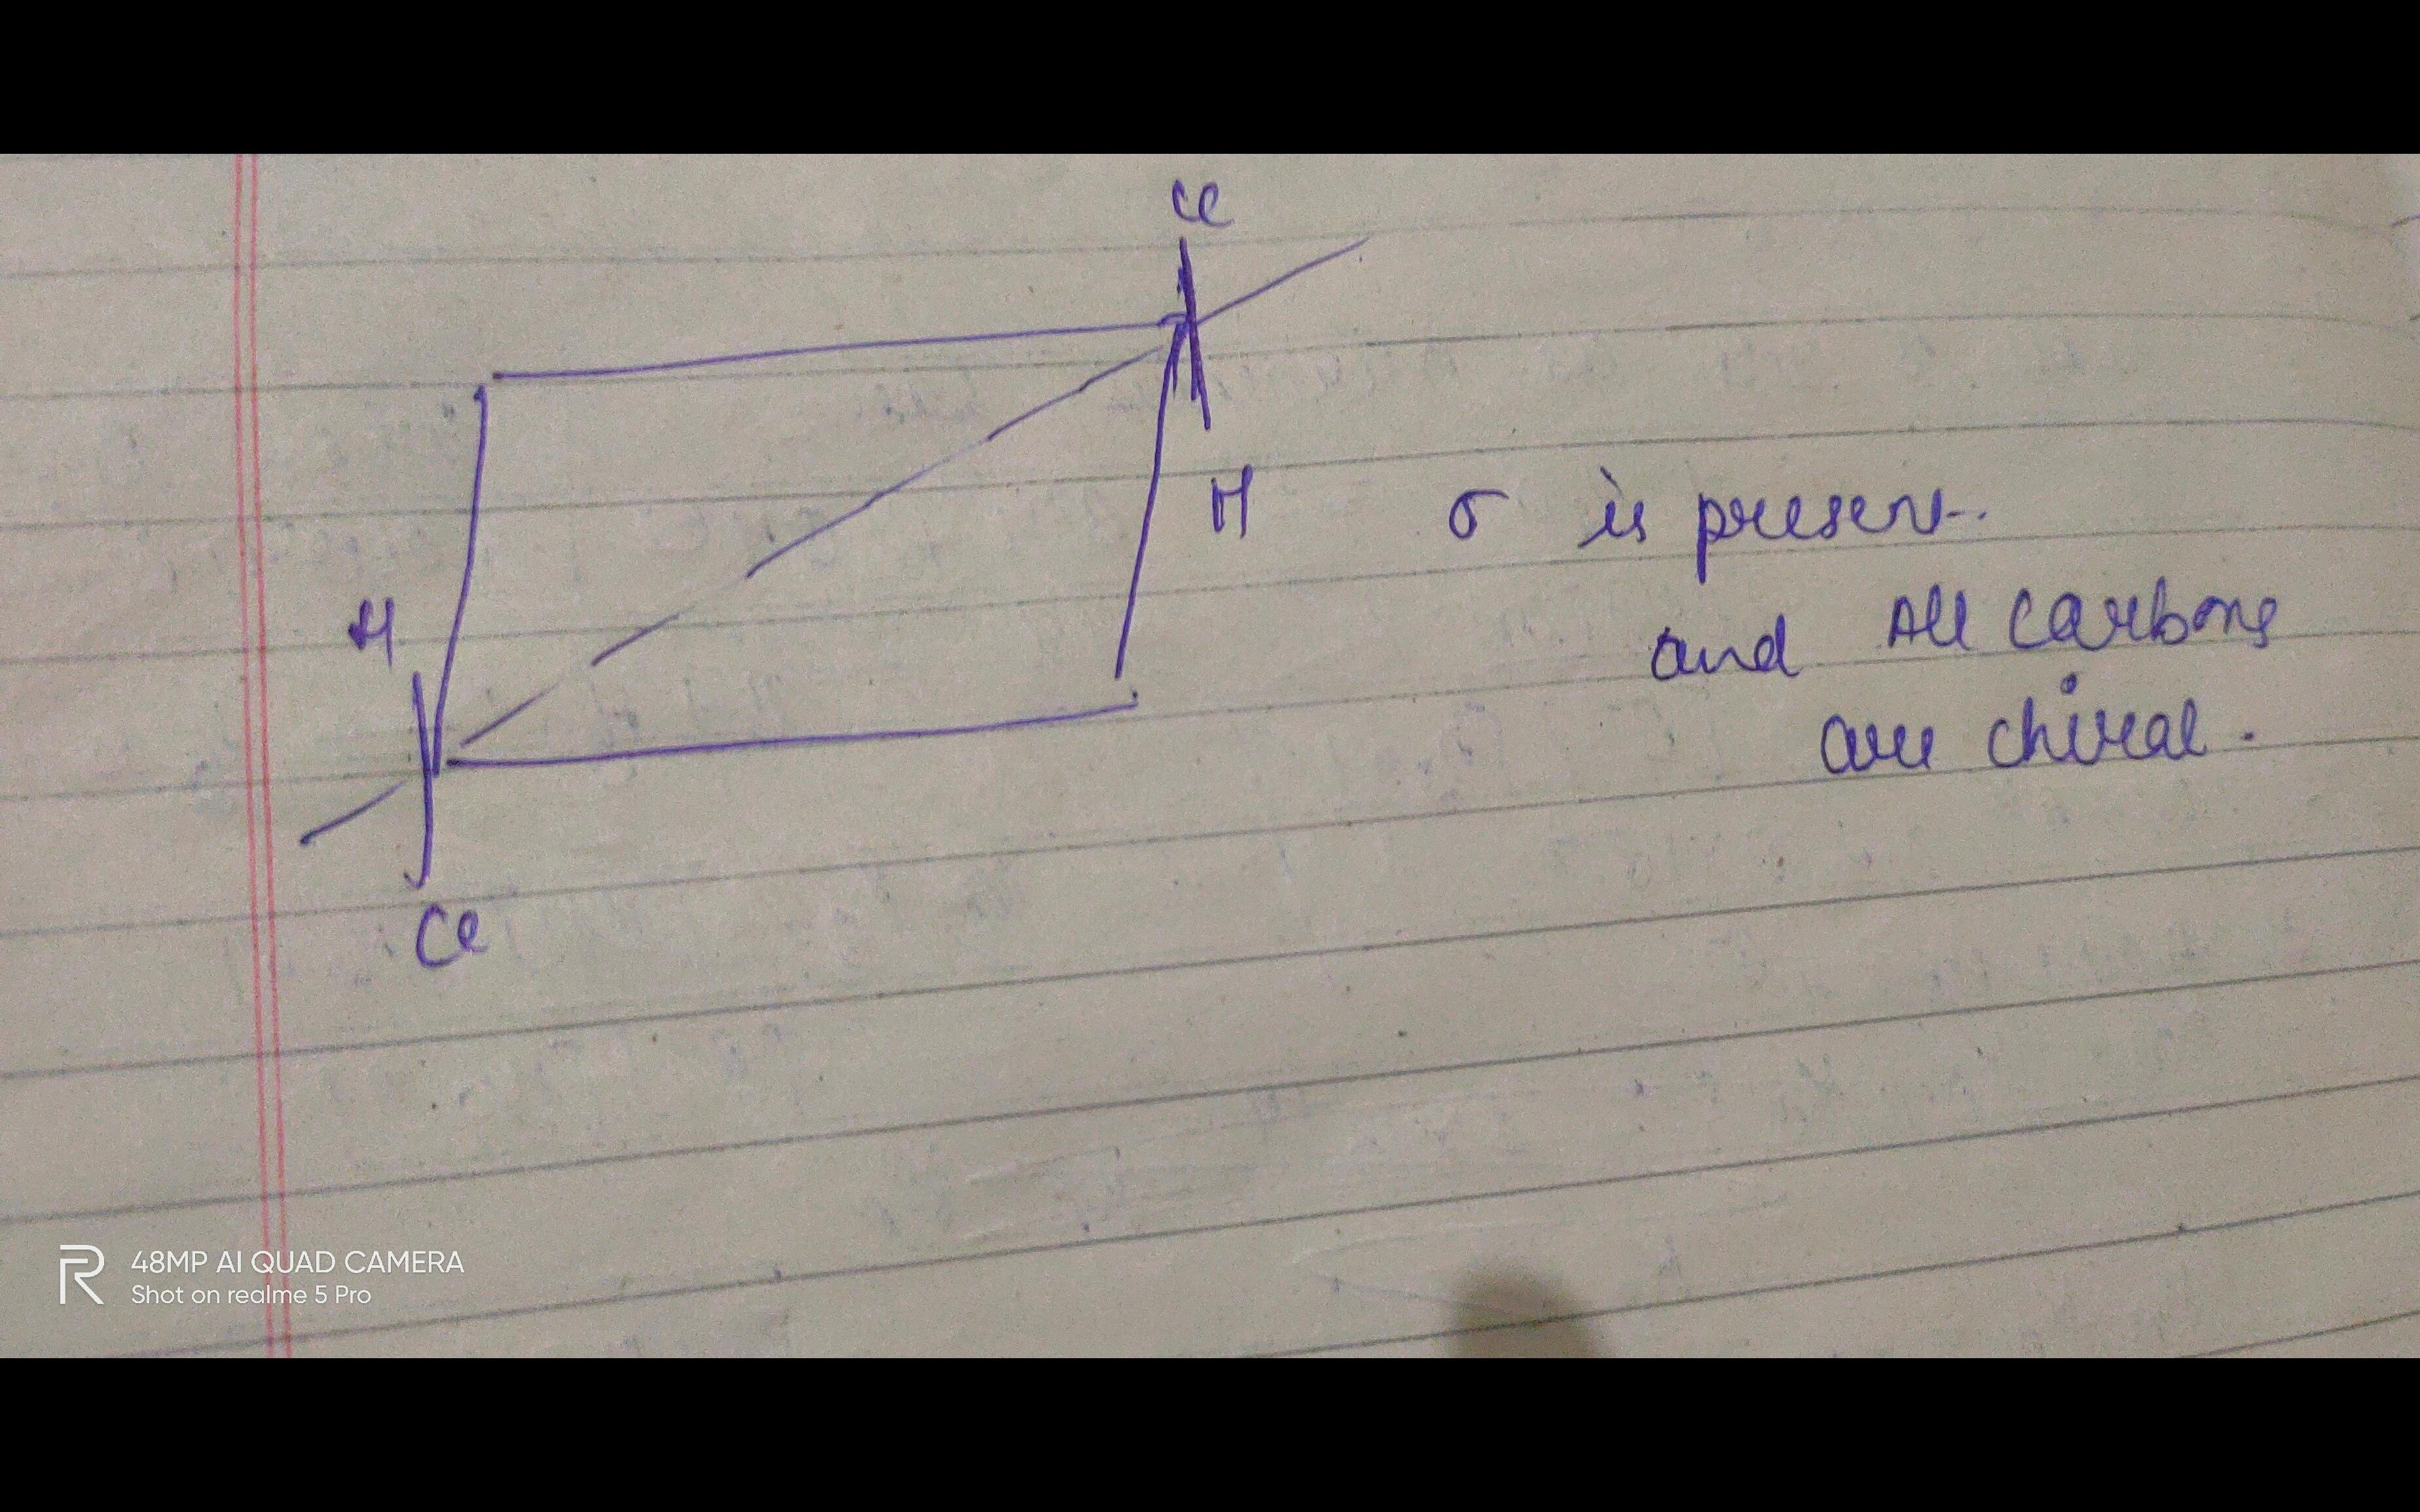 Cl
H
σ is present.
H
and All carbons
are chiral.
Cl
48MP AI QUAD CAMERA
Shot on realme 5 Pro